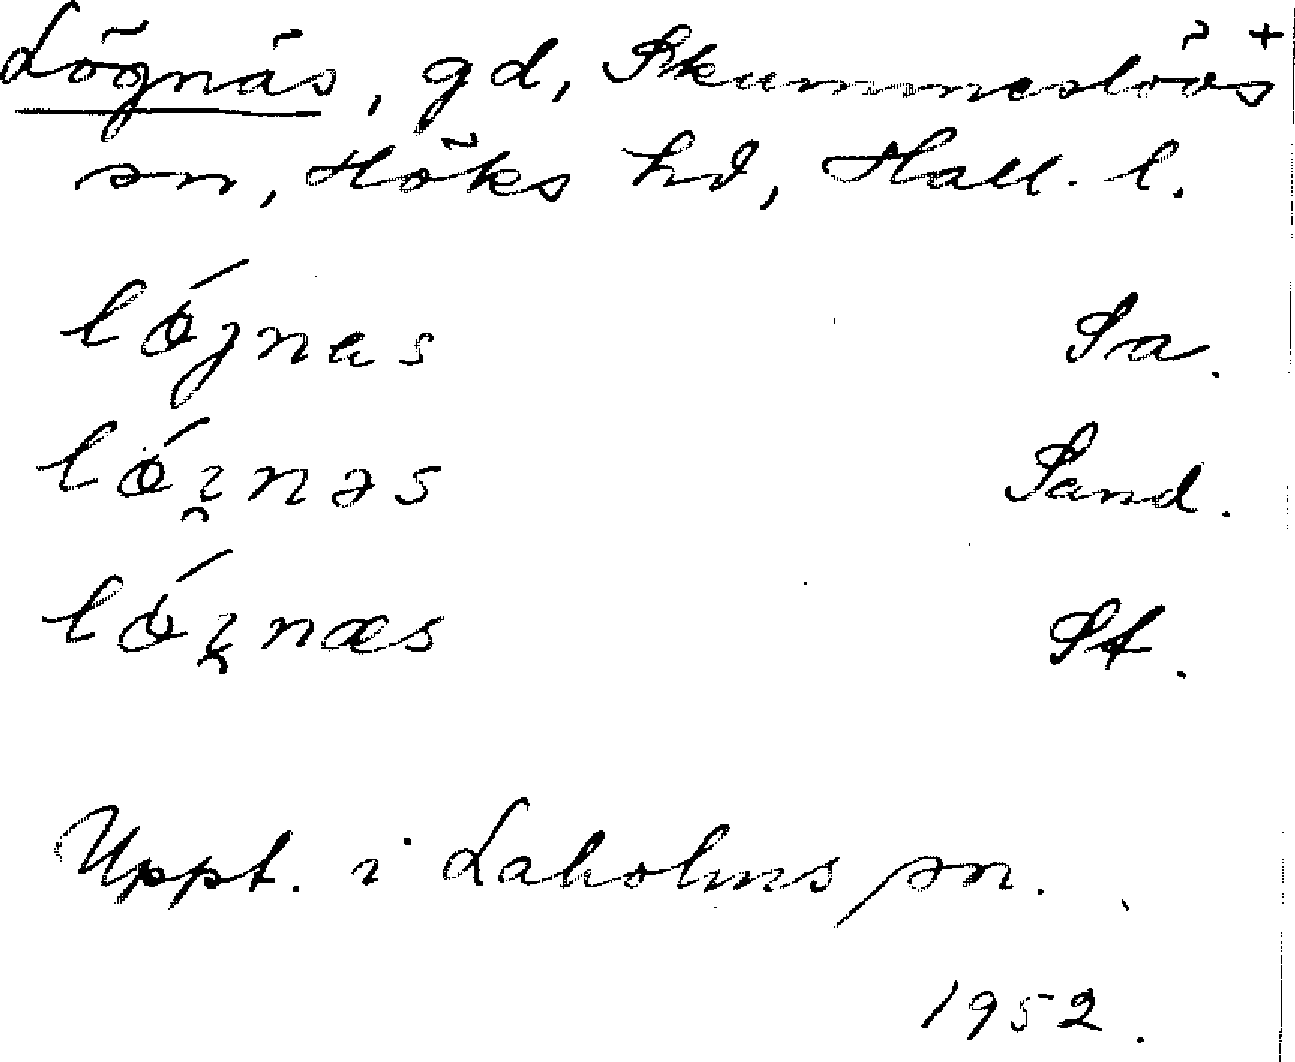 Lögnäs, gd, Skummeslövs +
sn, Höks hd, Hall. l.
lǿjnes Sa.
lǿı̯nəs Sand.
lǿı̯næs St.
Uppt. i Laholms sn.
1952.